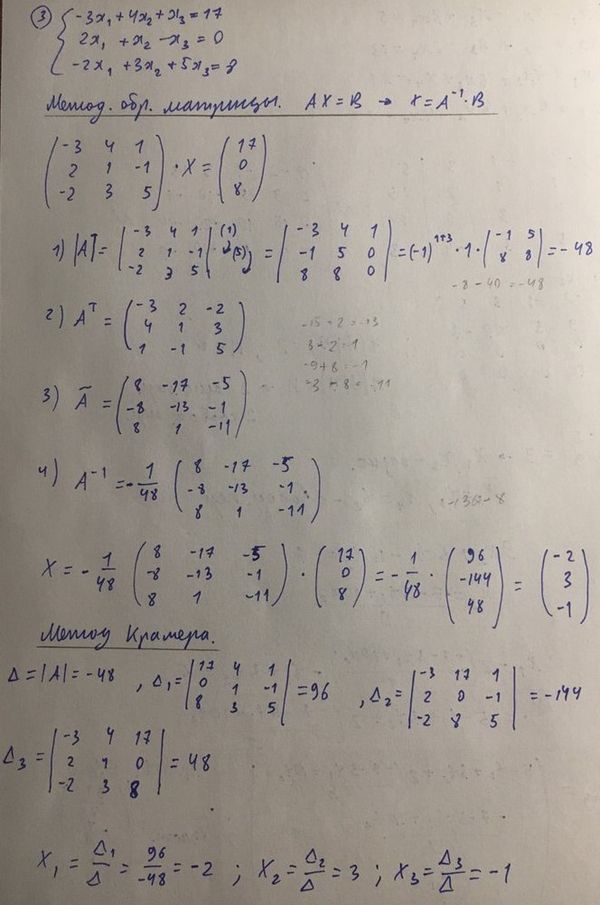 3) { -3x₁ + 4x₂ + x₃ = 17
2x₁ + x₂ - x₃ = 0
-2x₁ + 3x₂ + 5x₃ = 8
Метод. обр. матрицы. AX = B → X = A⁻¹·B
( -3 4 1 ; 2 1 -1 ; -2 3 5 ) · X = ( 17 ; 0 ; 8 )
1) |A| = | -3 4 1 ; 2 1 -1 ; -2 3 5 | (1) (5) = | -3 4 1 ; -1 5 0 ; 8 8 0 | = (-1)¹⁺³ · 1 · | -1 5 ; 8 8 | = -48
-8 - 40 = -48
2) Aᵀ = ( -3 2 -2 ; 4 1 3 ; 1 -1 5 )
-15 + 2 = -13
3 - 2 = 1
-9 + 8 = -1
-3 - 8 = -11
3) Ã = ( 8 -17 -5 ; -8 -13 -1 ; 8 1 -11 )
4) A⁻¹ = - 1/48 ( 8 -17 -5 ; -8 -13 -1 ; 8 1 -11 )
X = - 1/48 ( 8 -17 -5 ; -8 -13 -1 ; 8 1 -11 ) · ( 17 ; 0 ; 8 ) = - 1/48 · ( 96 ; -144 ; 48 ) = ( -2 ; 3 ; -1 )
Метод Крамера.
Δ = |A| = -48 , Δ₁ = | 17 4 1 ; 0 1 -1 ; 8 3 5 | = 96 , Δ₂ = | -3 17 1 ; 2 0 -1 ; -2 8 5 | = -144
Δ₃ = | -3 4 17 ; 2 1 0 ; -2 3 8 | = 48
X₁ = Δ₁/Δ = 96/-48 = -2 ; X₂ = Δ₂/Δ = 3 ; X₃ = Δ₃/Δ = -1